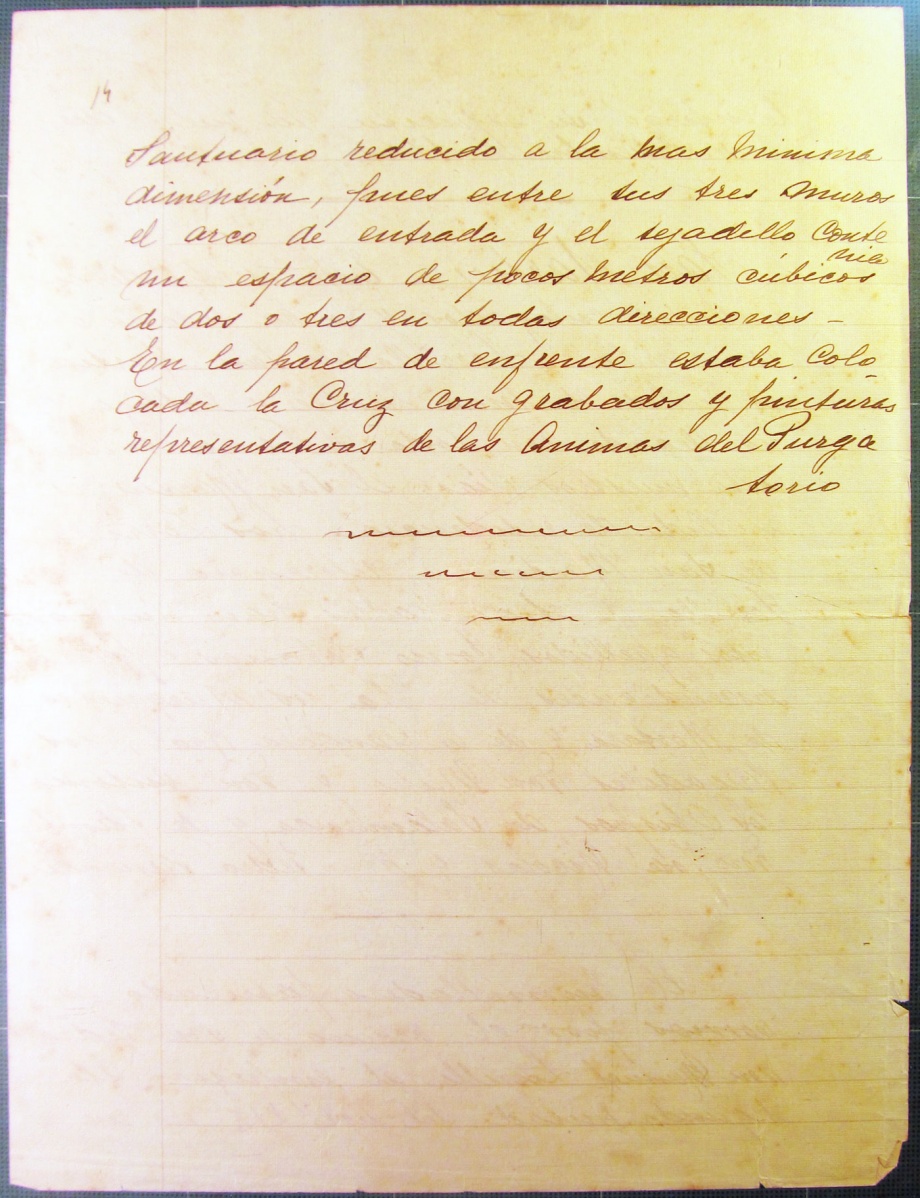 14
Santuario reducido a la mas minima
dimensión, pues entre sus tres muros
el arco de entrada y el tejadillo conte
nia
un espacio de pocos metros cúbicos
de dos o tres en todas direcciones -
En la pared de enfrente estaba colo
cada la Cruz con grabados y pinturas
representativas de las Animas del Purga
torio